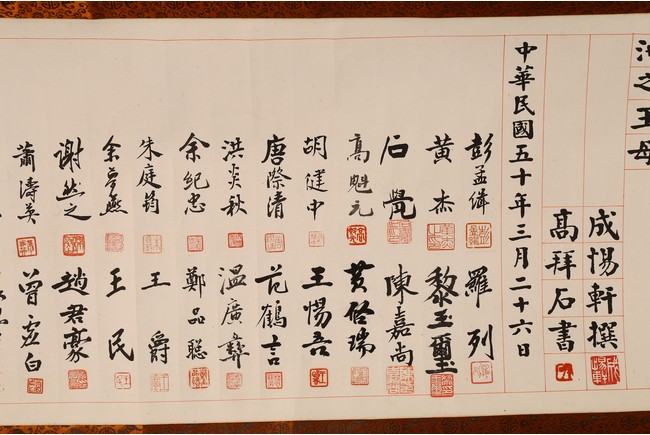 之王母
成惕軒撰
高拜石書
中華民國五十年三月二十六日
彭孟緝 羅列
黃杰 黎玉璽
石覺 陳嘉尚
高魁元 黃啓瑞
胡健中 王惕吾
唐際清 范鶴言
洪炎秋 溫廣彝
余紀忠 鄭品聰
朱庭筠 王爵
余夢燕 王民
謝然之 趙君豪
蕭濤英 曾虛白